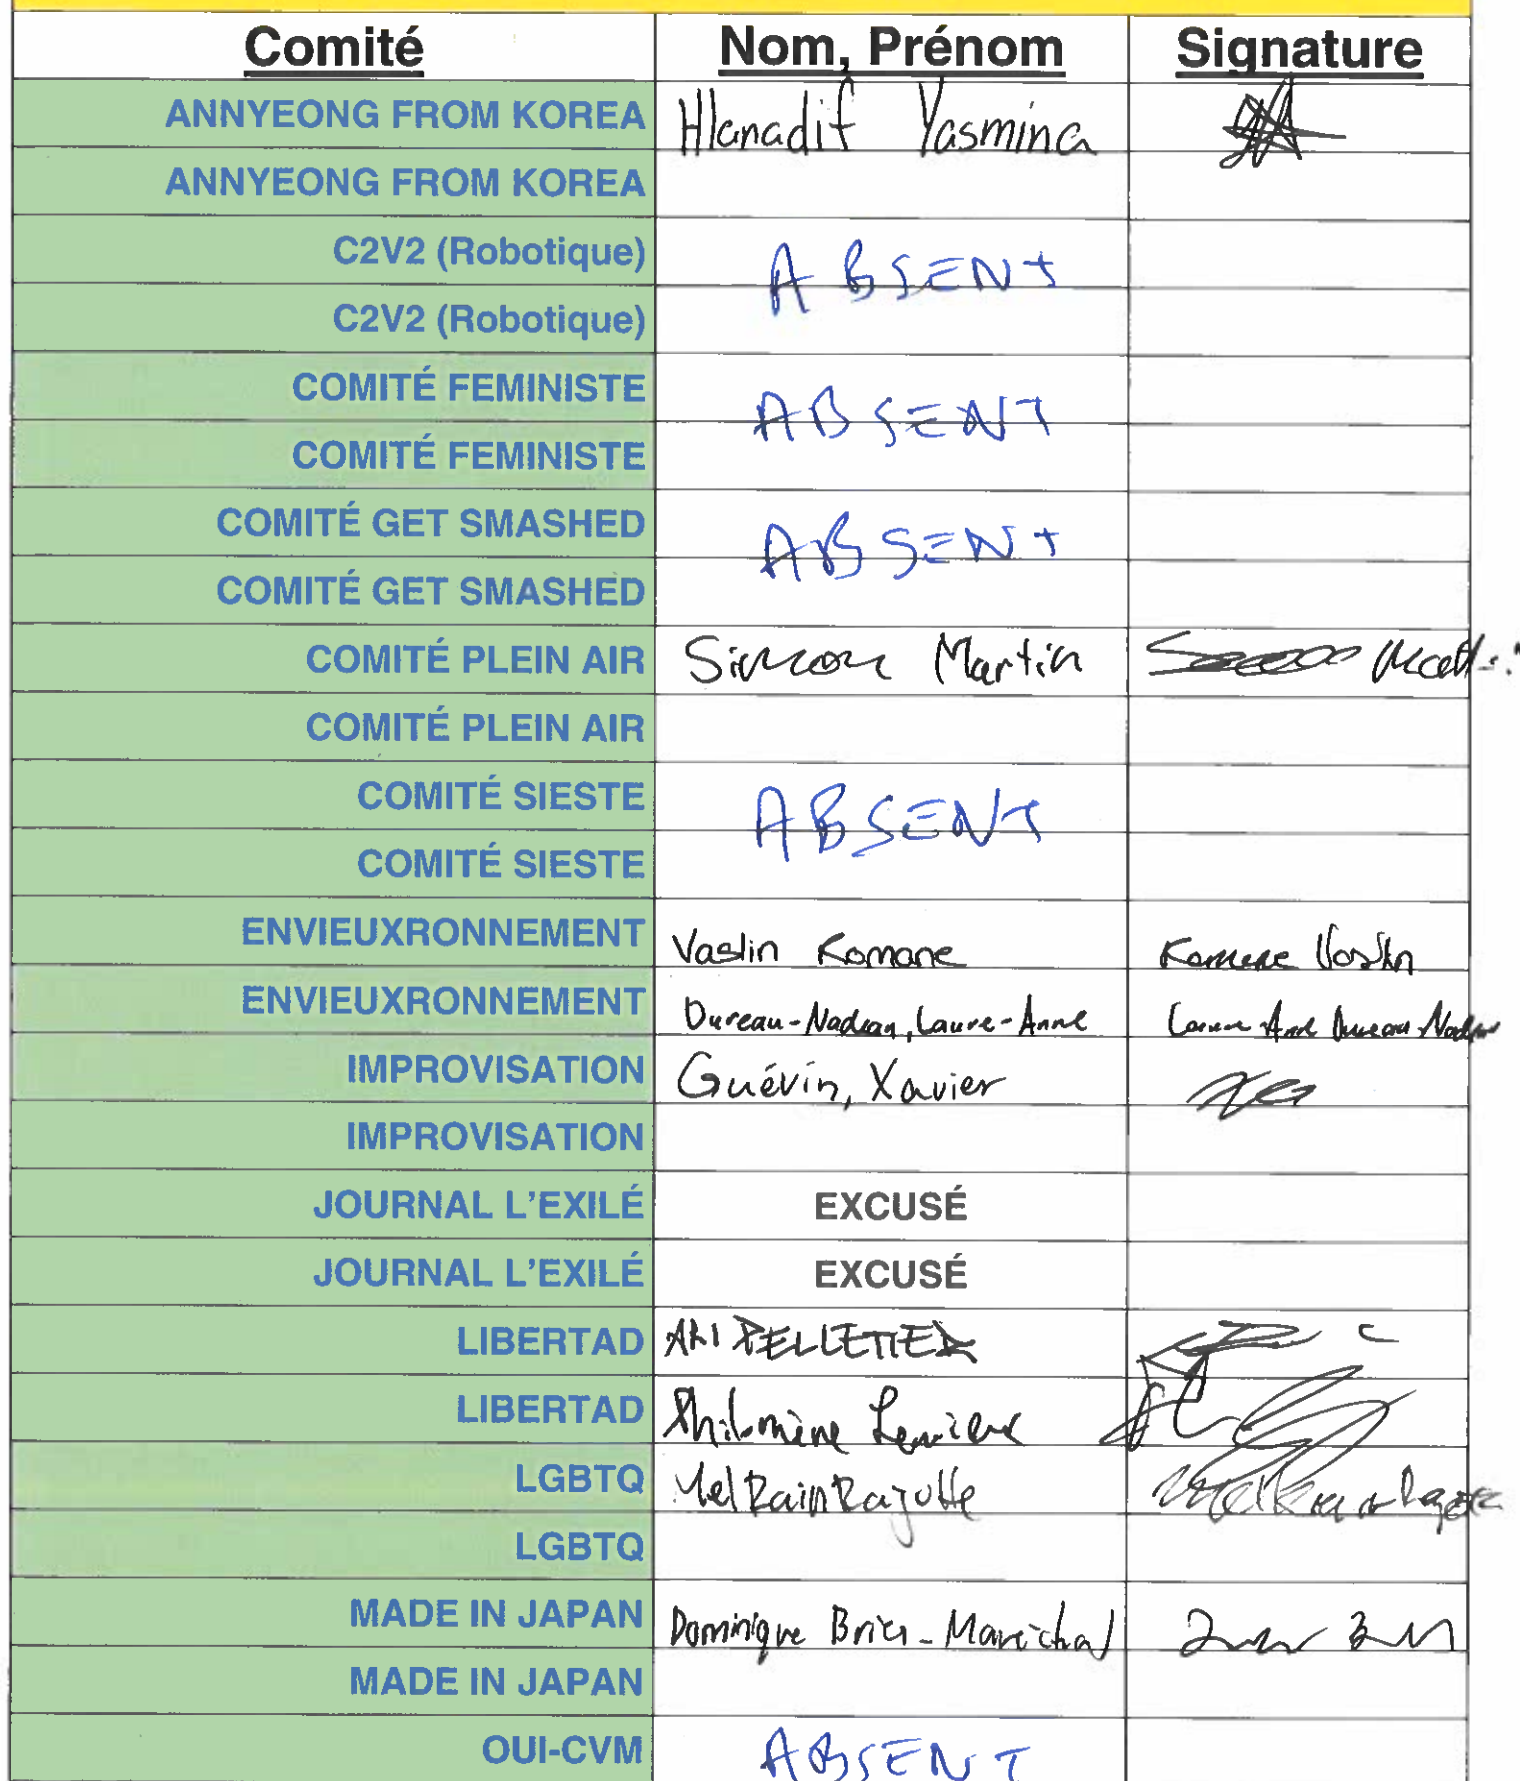 Comité Nom, Prénom Signature
ANNYEONG FROM KOREA Hlanadif Yasmina
ANNYEONG FROM KOREA
C2V2 (Robotique) ABSENT
C2V2 (Robotique)
COMITÉ FEMINISTE ABSENT
COMITÉ FEMINISTE
COMITÉ GET SMASHED ABSENT
COMITÉ GET SMASHED
COMITÉ PLEIN AIR Simon Martin
COMITÉ PLEIN AIR
COMITÉ SIESTE ABSENT
COMITÉ SIESTE
ENVIEUXRONNEMENT Vaslin Romane Romane Vaslin
ENVIEUXRONNEMENT Dureau-Nadeau, Laure-Anne Laure-Anne Dureau-Nadeau
IMPROVISATION Guévin, Xavier
IMPROVISATION
JOURNAL L'EXILÉ EXCUSÉ
JOURNAL L'EXILÉ EXCUSÉ
LIBERTAD ARI PELLETIER
LIBERTAD Philomène Lemieux
LGBTQ Mel Rain
LGBTQ
MADE IN JAPAN Dominique
MADE IN JAPAN
OUI-CVM ABSENT